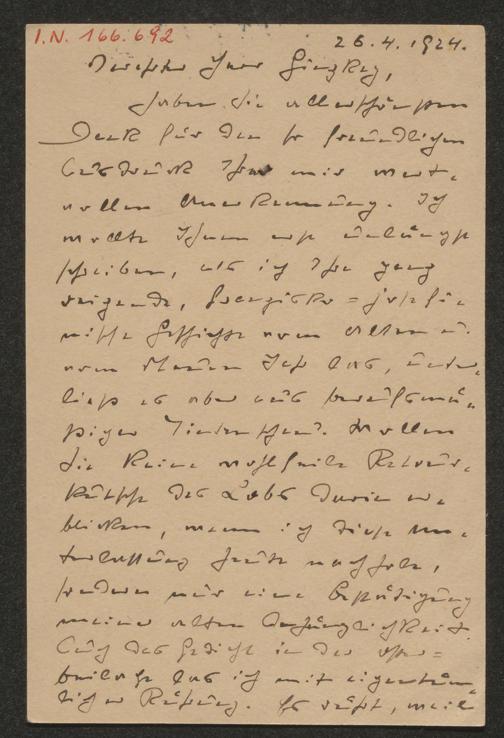 I.N. 166.692
26.4.1924.
Verehrter Herr Ginzkey,
haben Sie allerschönsten
Dank für den so freundlichen
Ausdruck Ihrer mir wert-
vollen Anerkennung. Ich
wollte Ihnen erst unlängst
schreiben, als ich Ihre ganz
reizende,
Geschichte vom alten u.
vom neuen las, unter-
ließ es aber aus berufsmä-
ßiger Tintenscheu. Wollen
Sie keine wohlfeile Retour-
kutsche des Lobs darin er-
blicken, wenn ich diese Un-
terlassung heute nachhole,
sondern nur eine Bestätigung
meiner alten Anhänglichkeit.
Auch das Gedicht in der Oster-
beilage las ich mit eigentüm-
licher Rührung. Es rührt, weil